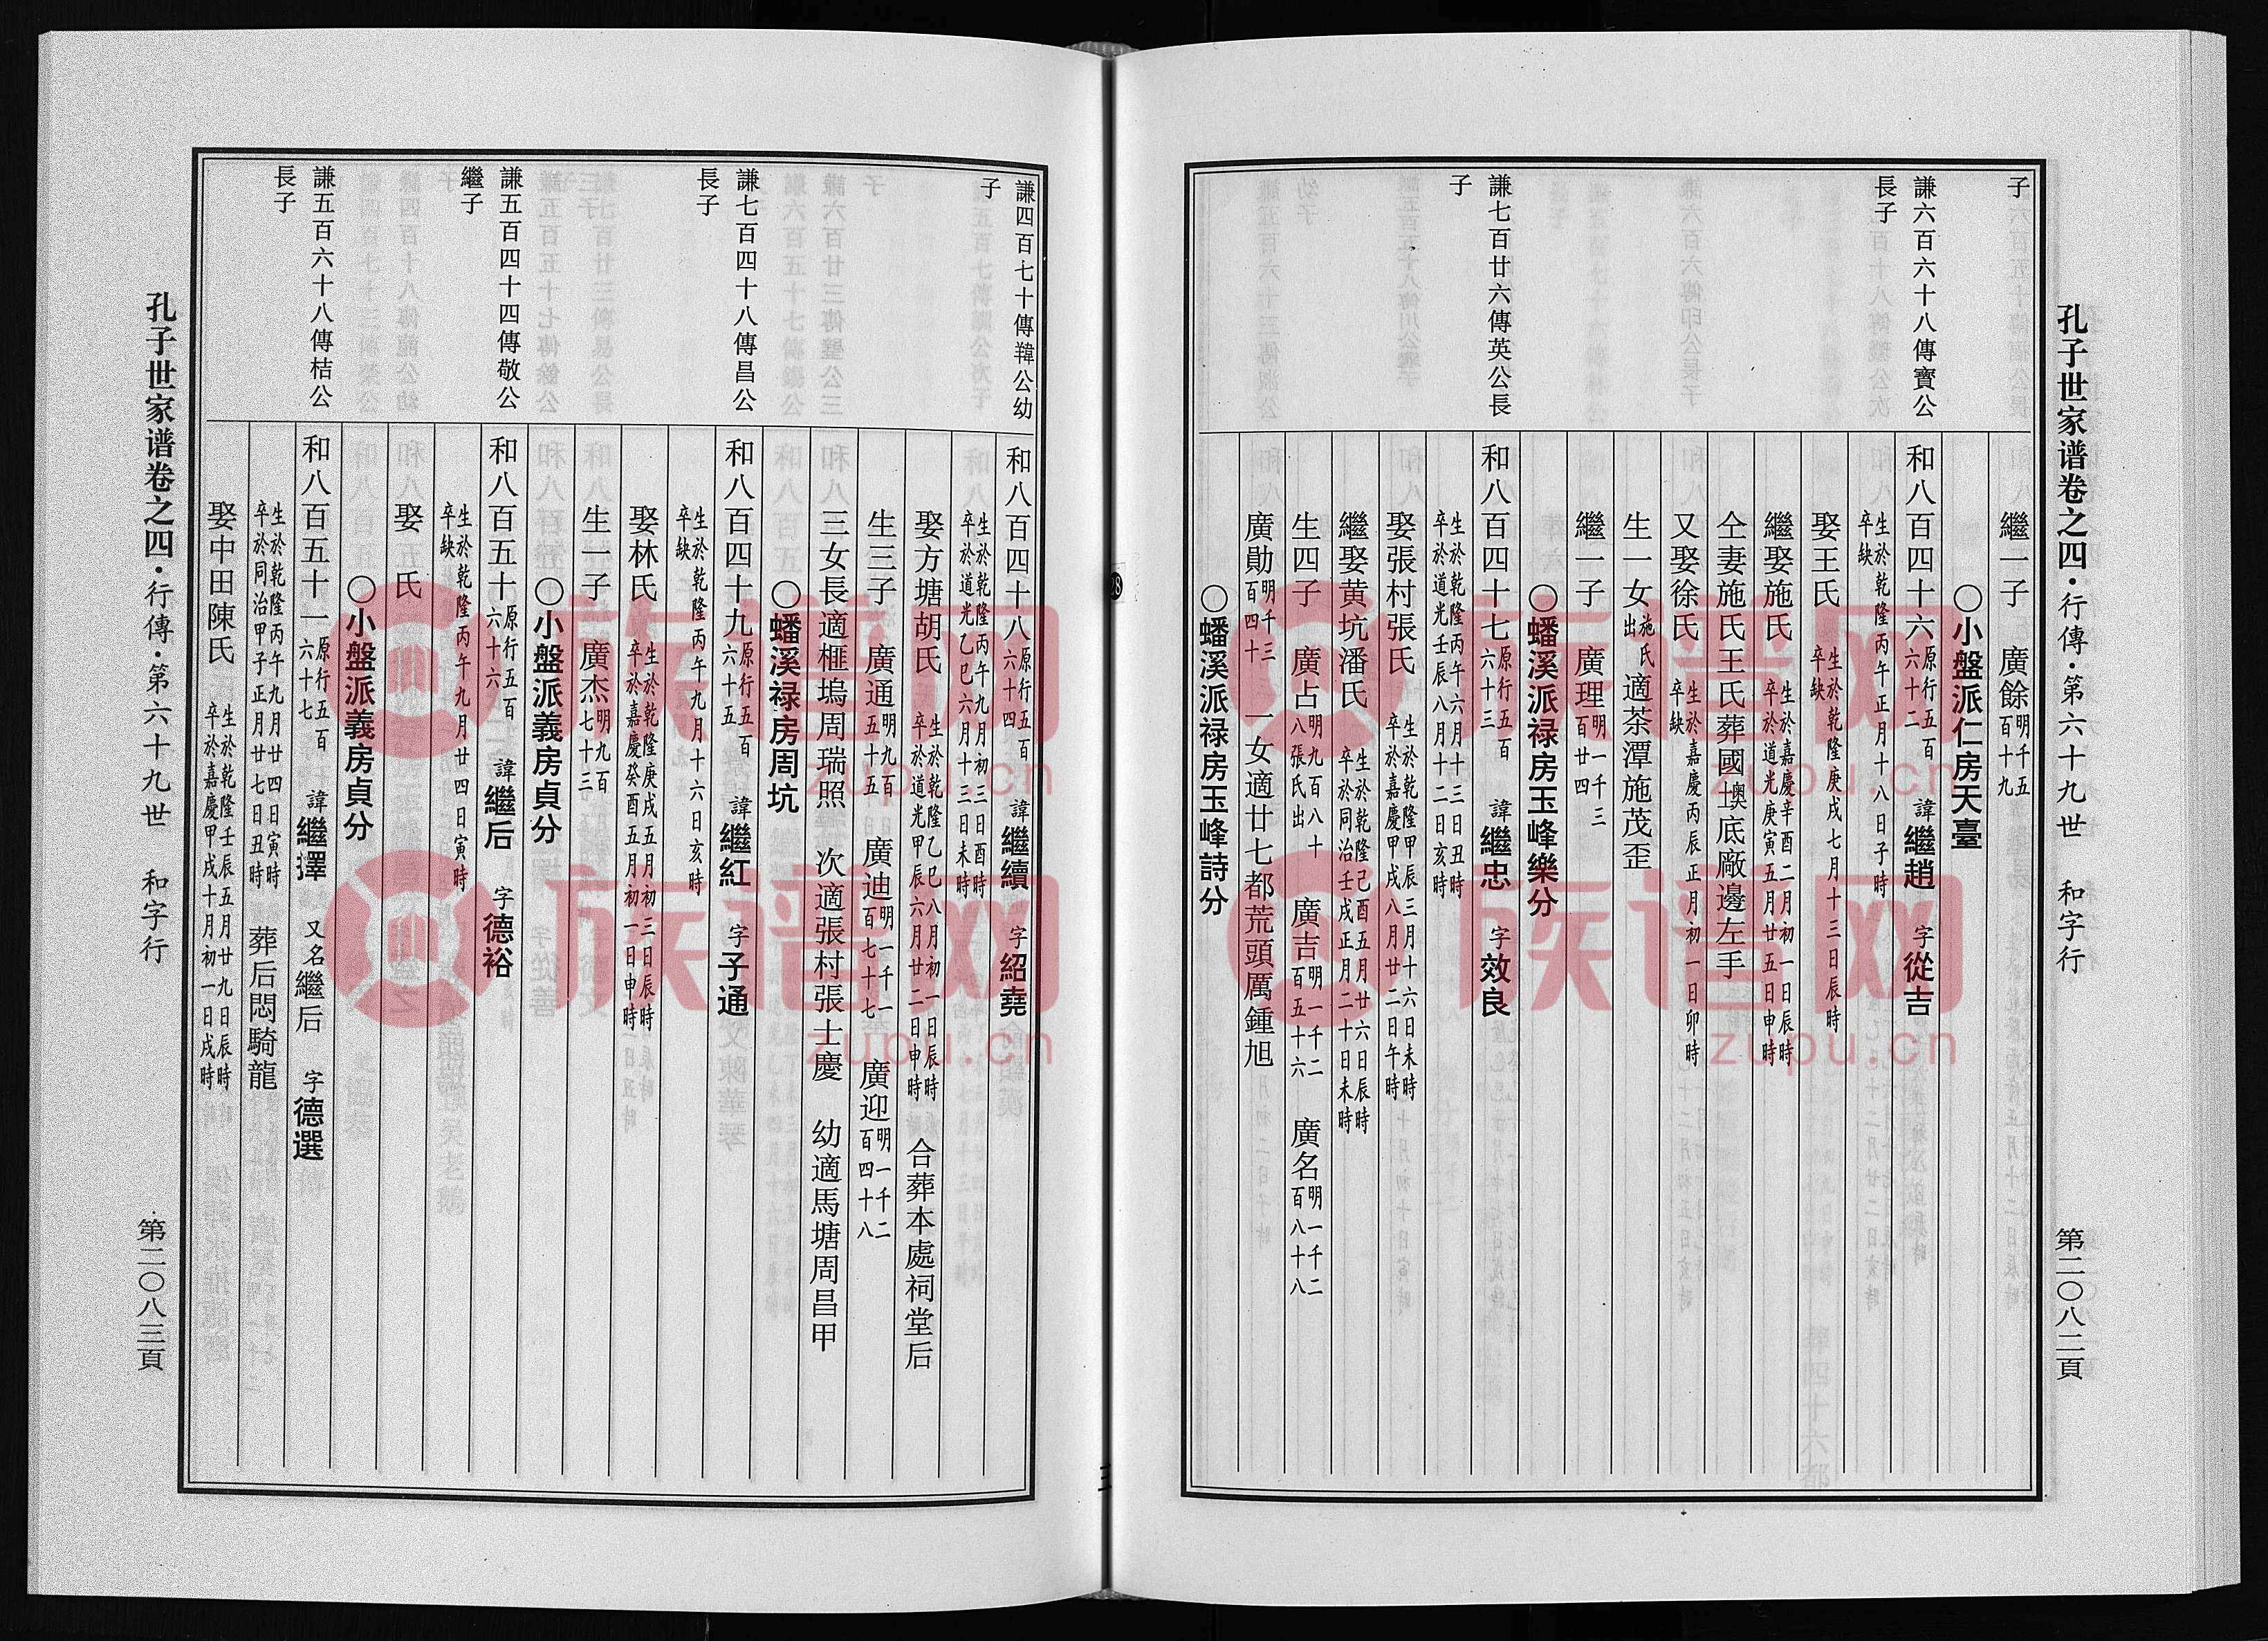 孔子世家谱卷之四·行傳·第六十九世 和字行 第二〇八二頁
子
繼一子 廣餘明千五百十九
〇小盤派仁房天臺
謙六百六十八傳寶公長子
和八百四十六原行五百六十二 諱繼趙 字從吉
生於乾隆丙午正月十八日子時
卒缺
娶王氏 生於乾隆庚戌七月十三日辰時 卒缺
繼娶施氏 生於嘉慶辛酉二月初一日辰時 卒於道光庚寅五月廿五日申時
仝妻施氏王氏葬國墺底廠邊左手
又娶徐氏 生於嘉慶丙辰正月初一日卯時 卒缺
生一女施氏出 適茶潭施茂歪
繼一子 廣理明一千三百廿四
〇蟠溪派禄房玉峰樂分
謙七百廿六傳英公長子
和八百四十七原行五百六十三 諱繼忠 字效良
生於乾隆丙午六月十三日丑時
卒於道光壬辰八月十二日亥時
娶張村張氏 生於乾隆甲辰三月十六日未時 卒於嘉慶甲戌八月廿二日午時
繼娶黄坑潘氏 生於乾隆己酉五月廿六日辰時 卒於同治壬戌正月二十日未時
生四子 廣占明九百八十八張氏出 廣吉明一千二百五十六 廣名明一千二百八十八
廣勛明千三百四十 一女適廿七都荒頭厲鍾旭
〇蟠溪派禄房玉峰詩分
謙四百七十傳韡公幼子
和八百四十八原行五百六十四 諱繼續 字紹堯
生於乾隆丙午九月初三日酉時
卒於道光乙巳六月十三日未時
娶方塘胡氏 生於乾隆乙巳八月初一日辰時 卒於道光甲辰六月廿二日申時 合葬本處祠堂后
生三子 廣通明九百五十五 廣迪明一千一百七十七 廣迎明一千二百四十八
三女長適榧塢周瑞照 次適張村張士慶 幼適馬塘周昌甲
〇蟠溪禄房周坑
謙七百四十八傳昌公長子
和八百四十九原行五百六十五 諱繼紅 字子通
生於乾隆丙午九月十六日亥時
卒缺
娶林氏 生於乾隆庚戌五月初三日辰時 卒於嘉慶癸酉五月初一日申時
生一子 廣杰明九百七十三
〇小盤派義房貞分
謙五百四十四傳敬公繼子
和八百五十原行五百六十六 諱繼后 字德裕
生於乾隆丙午九月廿四日寅時
卒缺
娶 氏
〇小盤派義房貞分
謙五百六十八傳桔公長子
和八百五十一原行五百六十七 諱繼擇 又名繼后 字德選
生於乾隆丙午九月廿四日寅時
卒於同治甲子正月廿七日丑時 葬后悶騎龍
娶中田陳氏 生於乾隆壬辰五月廿九日辰時 卒於嘉慶甲戌十月初一日戌時
孔子世家谱卷之四·行傳·第六十九世 和字行 第二〇八三頁
族谱网
zupu.cn
族谱网
zupu.cn
族谱网
zupu.cn
族谱网
zupu.cn